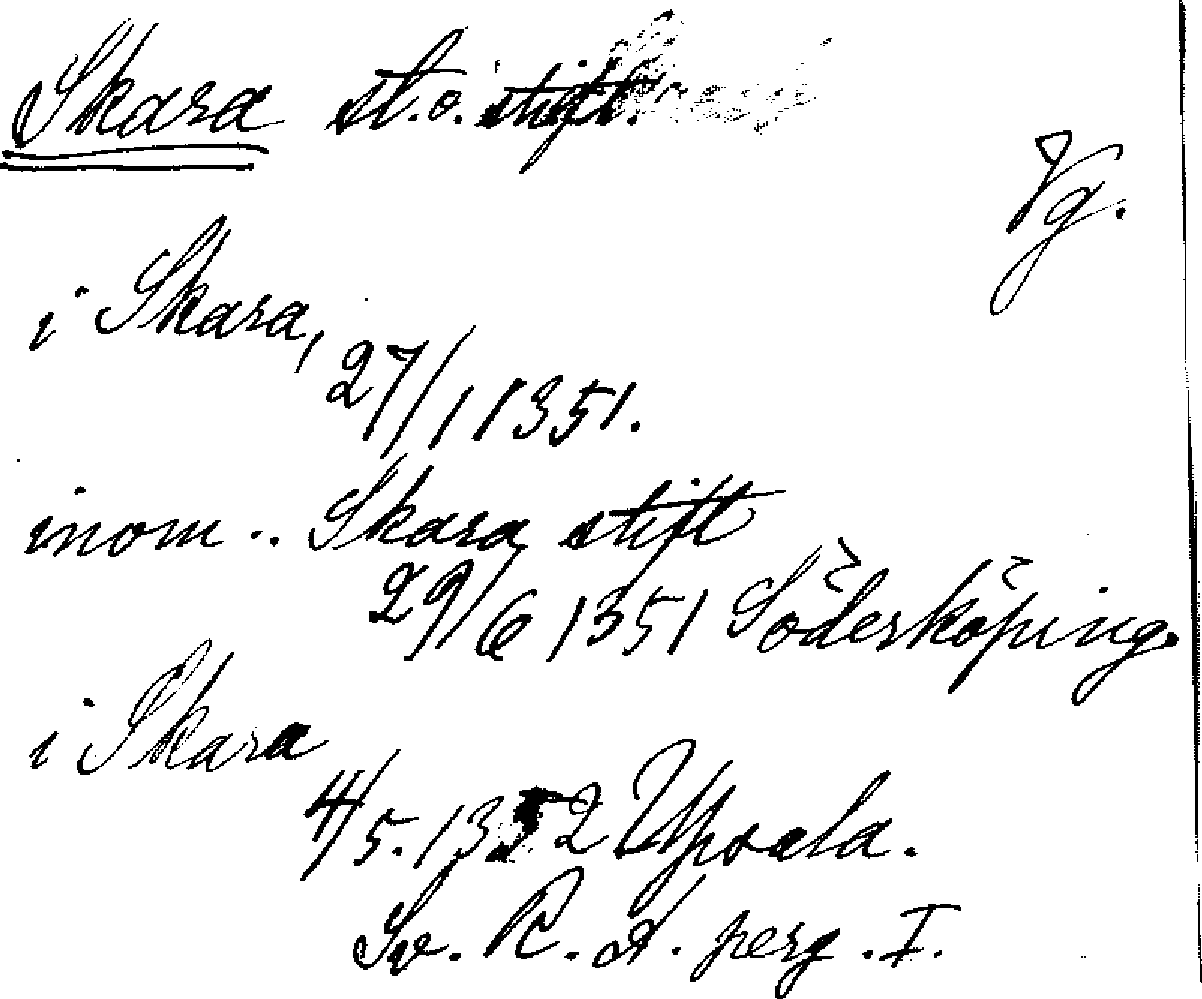 Skara st. o. stift.
Vg.
i Skara,
27/1 1351.
inom .. Skara stift
29/6 1351 Söderköping.
i Skara
4/5. 1352 Upsala.
Sv. R. A. perg. I.